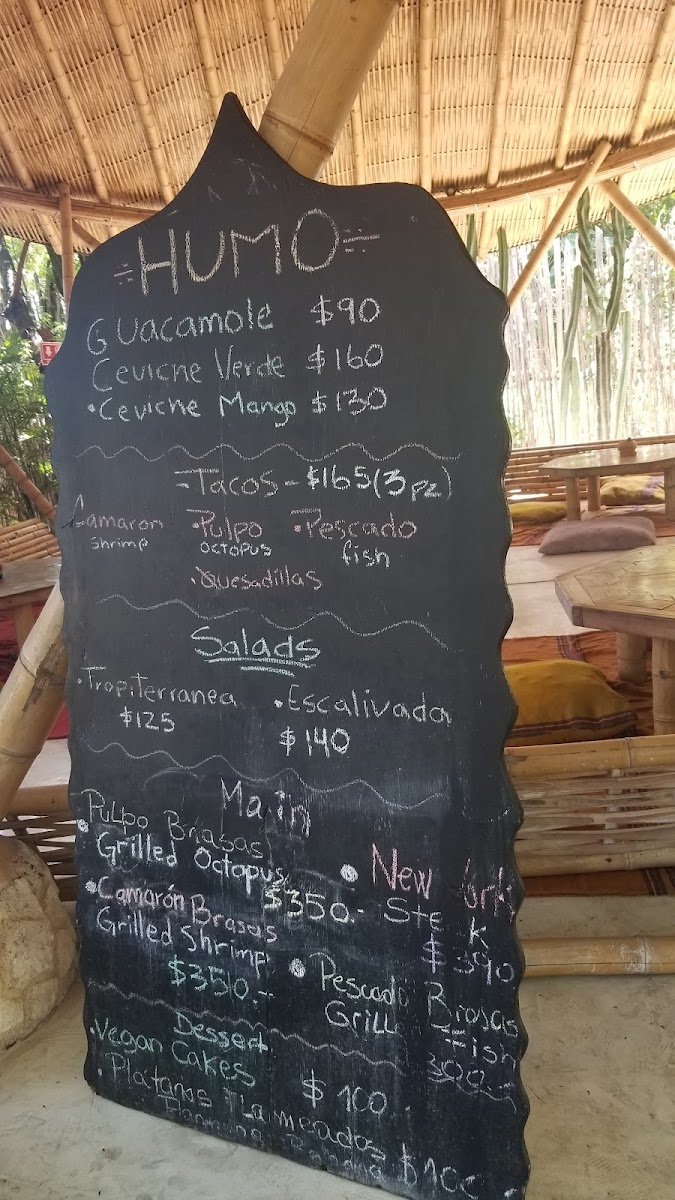 HUMO
Guacamole $90
Ceviche Verde $160
·Ceviche Mango $130
Tacos - $165 (3pz)
Camaron ·Pulpo ·Pescado
shrimp octopus fish
·Quesadillas
Salads
·Tropiterranea
$125
·Escalivada
$140
Main
·Pulpo Brasas
Grilled Octopus
$350.-
·Camarón Brasas
Grilled Shrimp
$350.-
·New York
Ste k
$390
·Pescado Brasas
Grill Fish
300
Dessert
·Vegan Cakes
$100
·Platanos Flameados $100
Flaming Banana